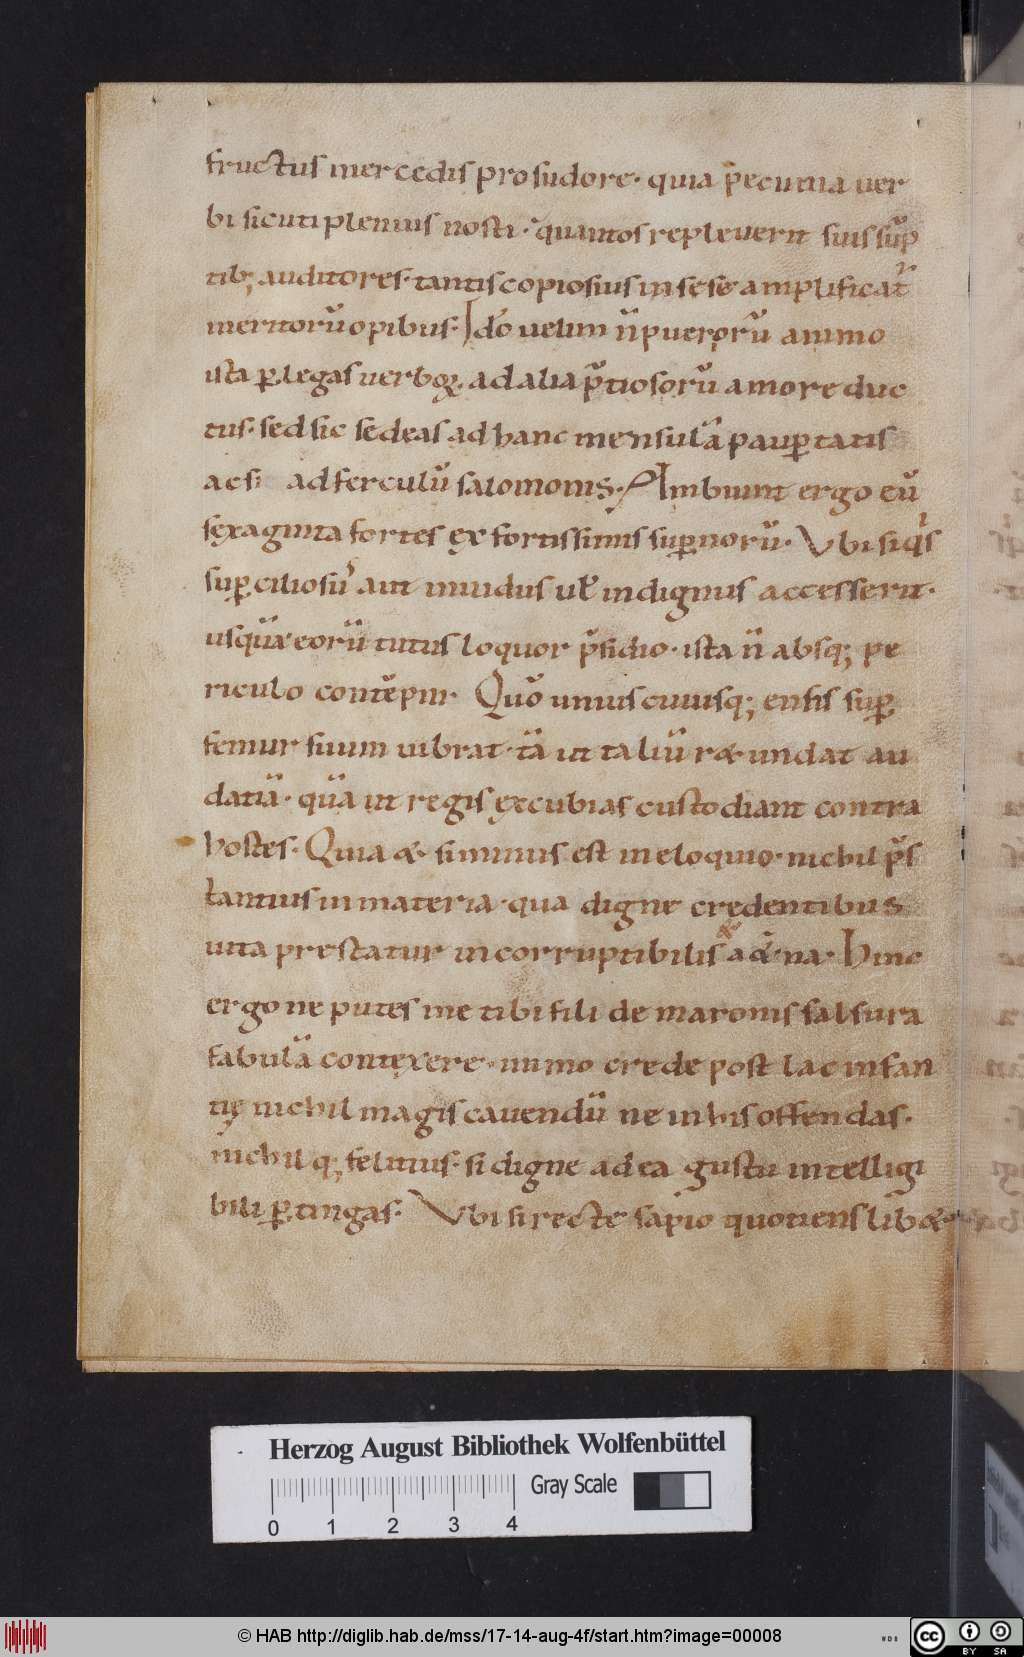 fructus mercedis pro sudore· quia pecunia uer
bi sicuti plenius nosti· quantos repleuerit suis sūp
tib; auditores· tantis copiosius in sese amplificat̄
meritorū opibus· Ido uelim n̄ pueroru̅ animo
ista ꝑlegas uerboꝝ, ad alia p̄tiosorū amore duc
tus· sed sic sedeas ad hanc mensulā pauꝑtatis
acsi ad ferculū salomonis· Ambiunt ergo eū
sexaginta fortes ex fortissimis suꝑnorū· Vbi siq̄s
suꝑciliosus aut inuidus uel indignus accesserit·
usquā eorū tutus loquor p̄sidio· ista n̄ absq; pe
riculo contēpnit· Quō uniuscuiusq; ensis suꝑ
femur suum uibrat· tā ut taliū retundat au
datiā· quā ut regis excubias custodiant contra
hostes· Quia et summus est in eloquio· nichil p̄s
tantius in materia· qua digne credentibus
uita prestatur incorruptibilis ac æt̄na· Hinc
ergo ne putes me tibi fili de maronis salsura
fabulā contexere· immo crede post lac infan
tię nichil magis cauendū ne in his offendas·
nichilq; felitius· si digne ad ea gustu intelligi
bili ꝑtingas· Vbi si recte sapio quotiens libet
Herzog August Bibliothek Wolfenbüttel
Gray Scale
0 1 2 3 4
© HAB http://diglib.hab.de/mss/17-14-aug-4f/start.htm?image=00008
WDB
cc BY SA